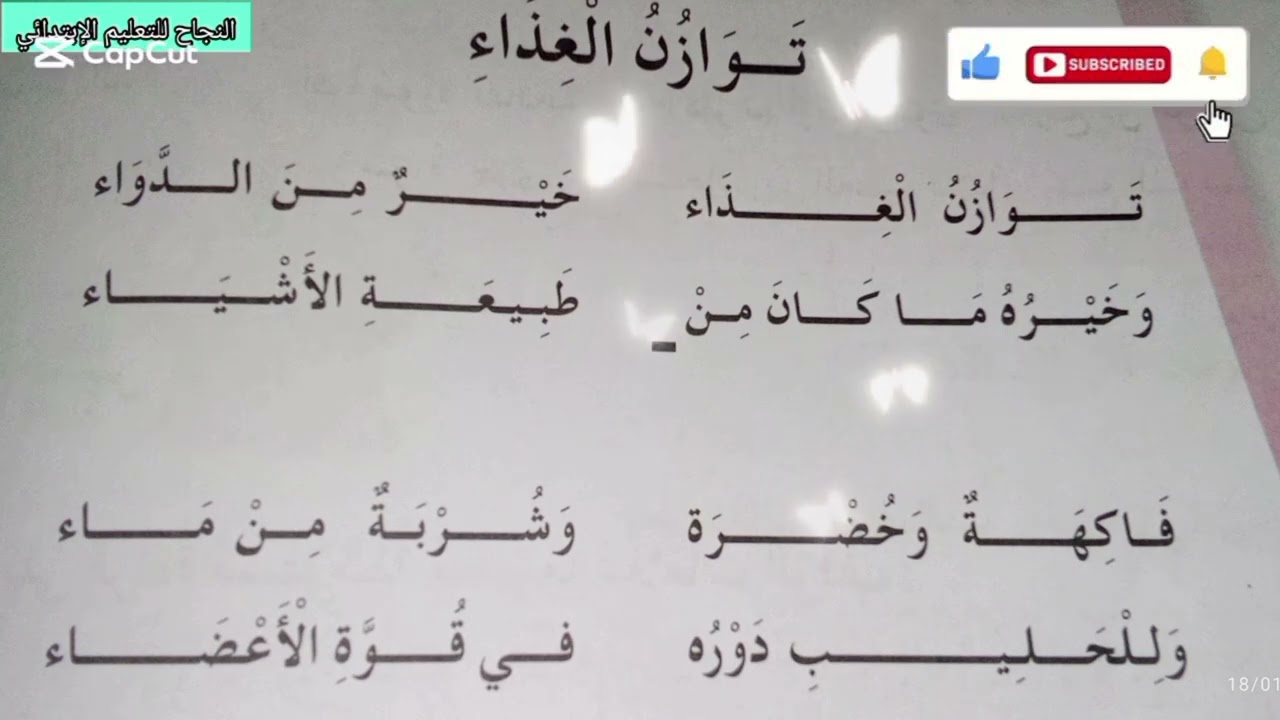 النجاح للتعليم الإبتدائي
CapCut
تَوَازُنُ الْغِذَاءِ
SUBSCRIBED
تَوَازُنُ الْغِذَاء خَيْرٌ مِنَ الدَّوَاء
وَخَيْرُهُ مَا كَانَ مِنْ طَبِيعَةِ الأَشْيَاء
فَاكِهَةٌ وَخُضْرَة وَشُرْبَةٌ مِنْ مَاء
وَلِلْحَلِيبِ دَوْرُه في قُوَّةِ الْأَعْضَاء
18/01